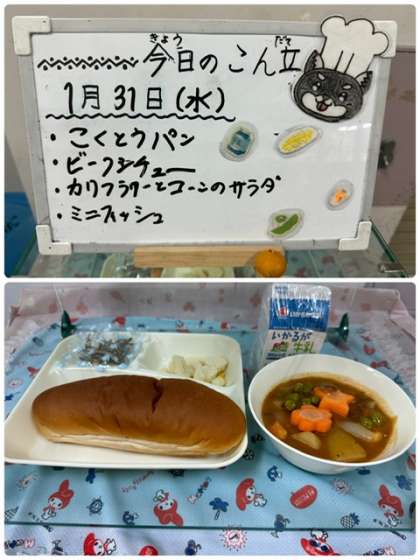 きょう だて
今日のこん立
1月31日(水)
・こくとうパン
・ビーフシチュー
・カリフラワーとコーンのサラダ
・ミニフィッシュ
いかるが
牛乳